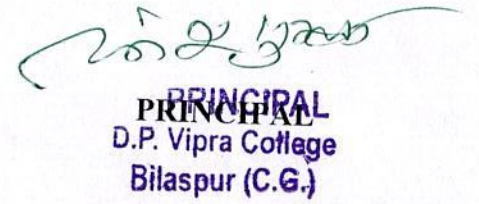 PRINCIPAL
PRINCIPAL
D.P. Vipra College
Bilaspur (C.G.)